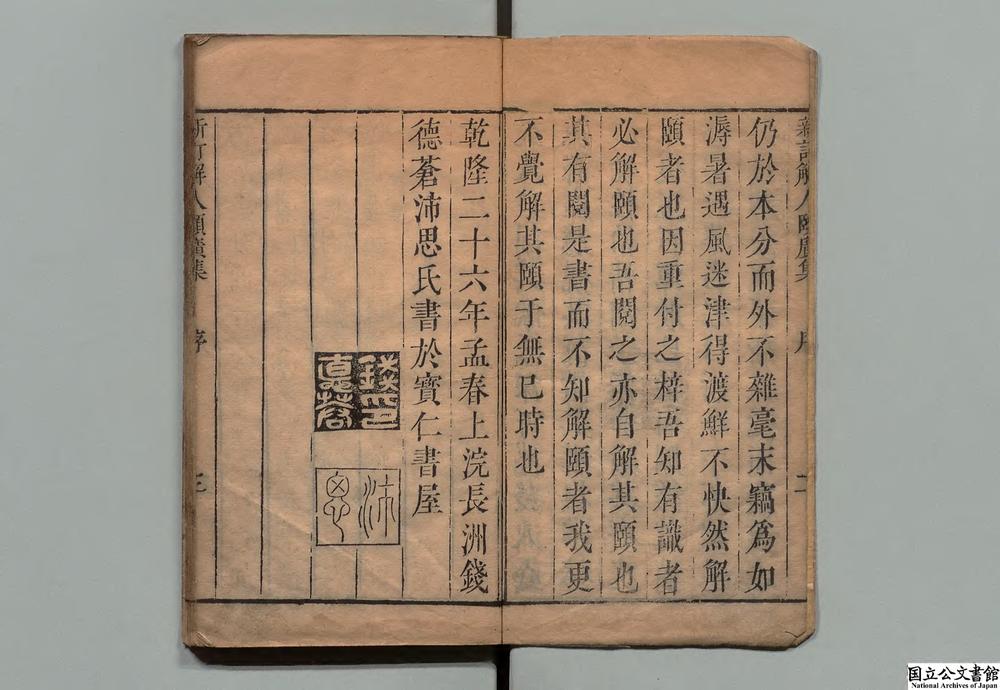 新訂解人頤廣集　序　二
仍於本分而外不雜毫末竊爲如
溽暑遇風迷津得渡鮮不快然解
頤者也因重付之梓吾知有識者
必解頤也吾閱之亦自解其頤也
其有閱是書而不知解頤者我更
不覺解其頤于無已時也
乾隆二十六年孟春上浣長洲錢
德蒼沛思氏書於寳仁書屋
錢印
惪蒼
沛
思
新訂解人頤廣集　序　三
国立公文書館
National Archives of Japan